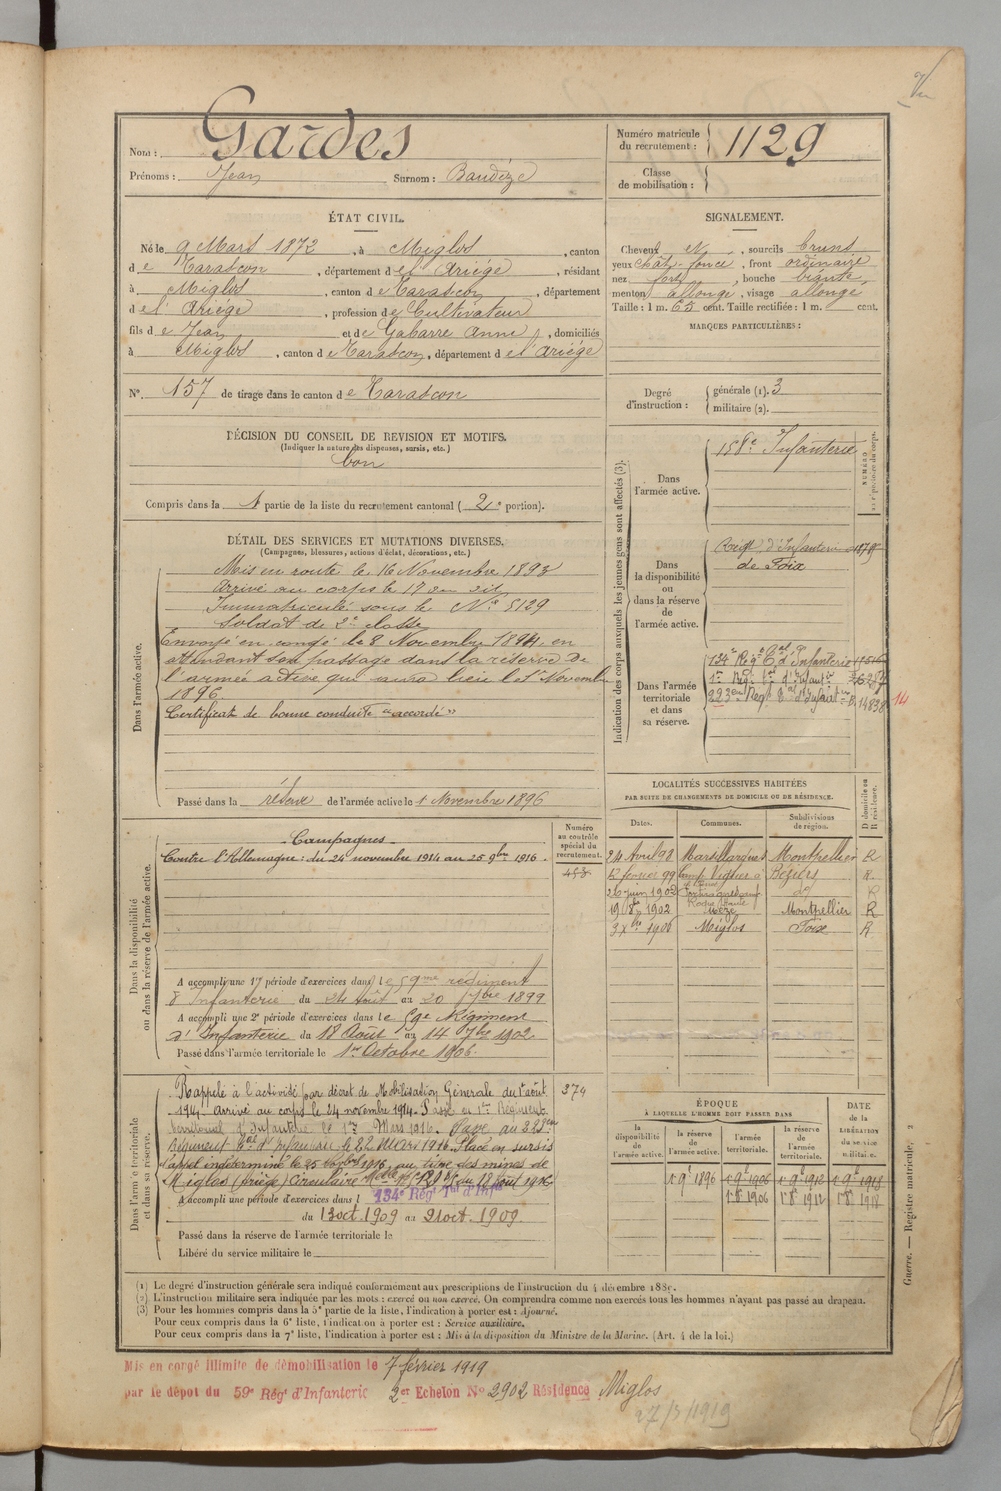 Nom : Gardes
Prénoms : Jean Surnom : Baudèze
Numéro matricule du recrutement : 1129
Classe de mobilisation :
ÉTAT CIVIL.
Né le 9 Mars 1872, à Miglos, canton
de Tarascon, département de l'Ariége, résidant
à Miglos, canton de Tarascon, département
de l'Ariége, profession de Cultivateur
fils de Jean et de Gabarre Anne, domiciliés
à Miglos, canton de Tarascon, département de l'Ariége
N° 157 de tirage dans le canton de Tarascon
DÉCISION DU CONSEIL DE REVISION ET MOTIFS.
(Indiquer la nature des dispenses, sursis, etc.)
bon
Compris dans la 1 partie de la liste du recrutement cantonal (2e portion).
SIGNALEMENT.
Cheveux et, sourcils bruns
yeux chât. foncé, front ordinaire
nez fort, bouche béante
menton allongé, visage allongé
Taille : 1 m. 65 cent. Taille rectifiée : 1 m. cent.
MARQUES PARTICULIÈRES :
Degré d'instruction :
générale (1). 3
militaire (2).
DÉTAIL DES SERVICES ET MUTATIONS DIVERSES.
(Campagnes, blessures, actions d'éclat, décorations, etc.)
Dans l'armée active.
Mis en route le 16 Novembre 1893
Arrivé au corps le 17 du dit
Immatriculé sous le N° 5129
Soldat de 2e classe
Envoyé en congé le 8 Novembre 1894, en
attendant son passage dans la réserve de
l'armée active qui aura lieu le 1er Novembre
1896.
Certificat de bonne conduite "accordé"
Passé dans la réserve de l'armée active le 1 Novembre 1896
Indication des corps auxquels les jeunes gens sont affectés (3).
NUMÉRO
au répertoire du corps.
Dans l'armée active.
158e Infanterie
Dans la disponibilité ou dans la réserve de l'armée active.
Régt d'Infanterie
de Foix
Dans l'armée territoriale et dans sa réserve.
134e Régt Tal d'Infanterie
1er Régt Tal d'Infant
223em Regt Tal d'Infant 14838
14
LOCALITÉS SUCCESSIVES HABITÉES
PAR SUITE DE CHANGEMENTS DE DOMICILE OU DE RÉSIDENCE.
D domicile ou R résidence.
Dates. Communes. Subdivisions de région.
24 Avril 98 Marsillargues Montpellier R
février 99 Béziers R.
26 juin 1902 do R
19 8bre 1902 Mèze Montpellier R
3 Xbre 1906 Miglos Foix R
Dans la disponibilité ou dans la réserve de l'armée active.
Numéro au contrôle spécial du recrutement.
458
Campagnes
Contre l'Allemagne : du 24 novembre 1914 au 25 9bre 1916.
A accompli une 1re période d'exercices dans le 59me régiment
d'Infanterie du 24 Août au 20 7bre 1899
A accompli une 2e période d'exercices dans le 59e Régiment
d'Infanterie du 18 Août au 14 7bre 1902
Passé dans l'armée territoriale le 1er Octobre 1906.
Dans l'armée territoriale et dans sa réserve.
374
Rappelé à l'activité par décret de Mobilisation Générale du 1er août
1914. Arrivé au corps le 24 novembre 1914. Passé au 1er Régiment
territorial d'Infanterie le 1er Mars 1916. Passé au 223em
Régiment Tal d'Infanterie le 22 Mars 1916. Placé en sursis
d'appel indéterminé le 25 1916 au titre des mines de
Miglos (Ariège) Circulaire du 18 août 1916
134e Régt Tal d'Infie
A accompli une période d'exercices dans l
du 13 oct. 1909 au 21 oct. 1909.
Passé dans la réserve de l'armée territoriale le
Libéré du service militaire le
ÉPOQUE
À LAQUELLE L'HOMME DOIT PASSER DANS
la disponibilité de l'armée active. la réserve de l'armée active. l'armée territoriale. la réserve de l'armée territoriale.
DATE de la LIBÉRATION du service militaire.
1 9e 1896 1 9e 1906 1 9e 1912 1 9e 1918
1 8e 1906 1 8e 1912 1 8e 1918
Guerre. — Registre matricule, 2
(1) Le degré d'instruction générale sera indiqué conformément aux prescriptions de l'instruction du 4 décembre 1889.
(2) L'instruction militaire sera indiquée par les mots : exercé ou non exercé. On comprendra comme non exercés tous les hommes n'ayant pas passé au drapeau.
(3) Pour les hommes compris dans la 5e partie de la liste, l'indication à porter est : Ajourné.
Pour ceux compris dans la 6e liste, l'indication à porter est : Service auxiliaire.
Pour ceux compris dans la 7e liste, l'indication à porter est : Mis à la disposition du Ministre de la Marine. (Art. 4 de la loi.)
Mis en congé illimité de démobilisation le 7 février 1919
par le dépôt du 59e Régt d'Infanterie 2er Echelon N° 2902 Résidence Miglos
27/3/1919